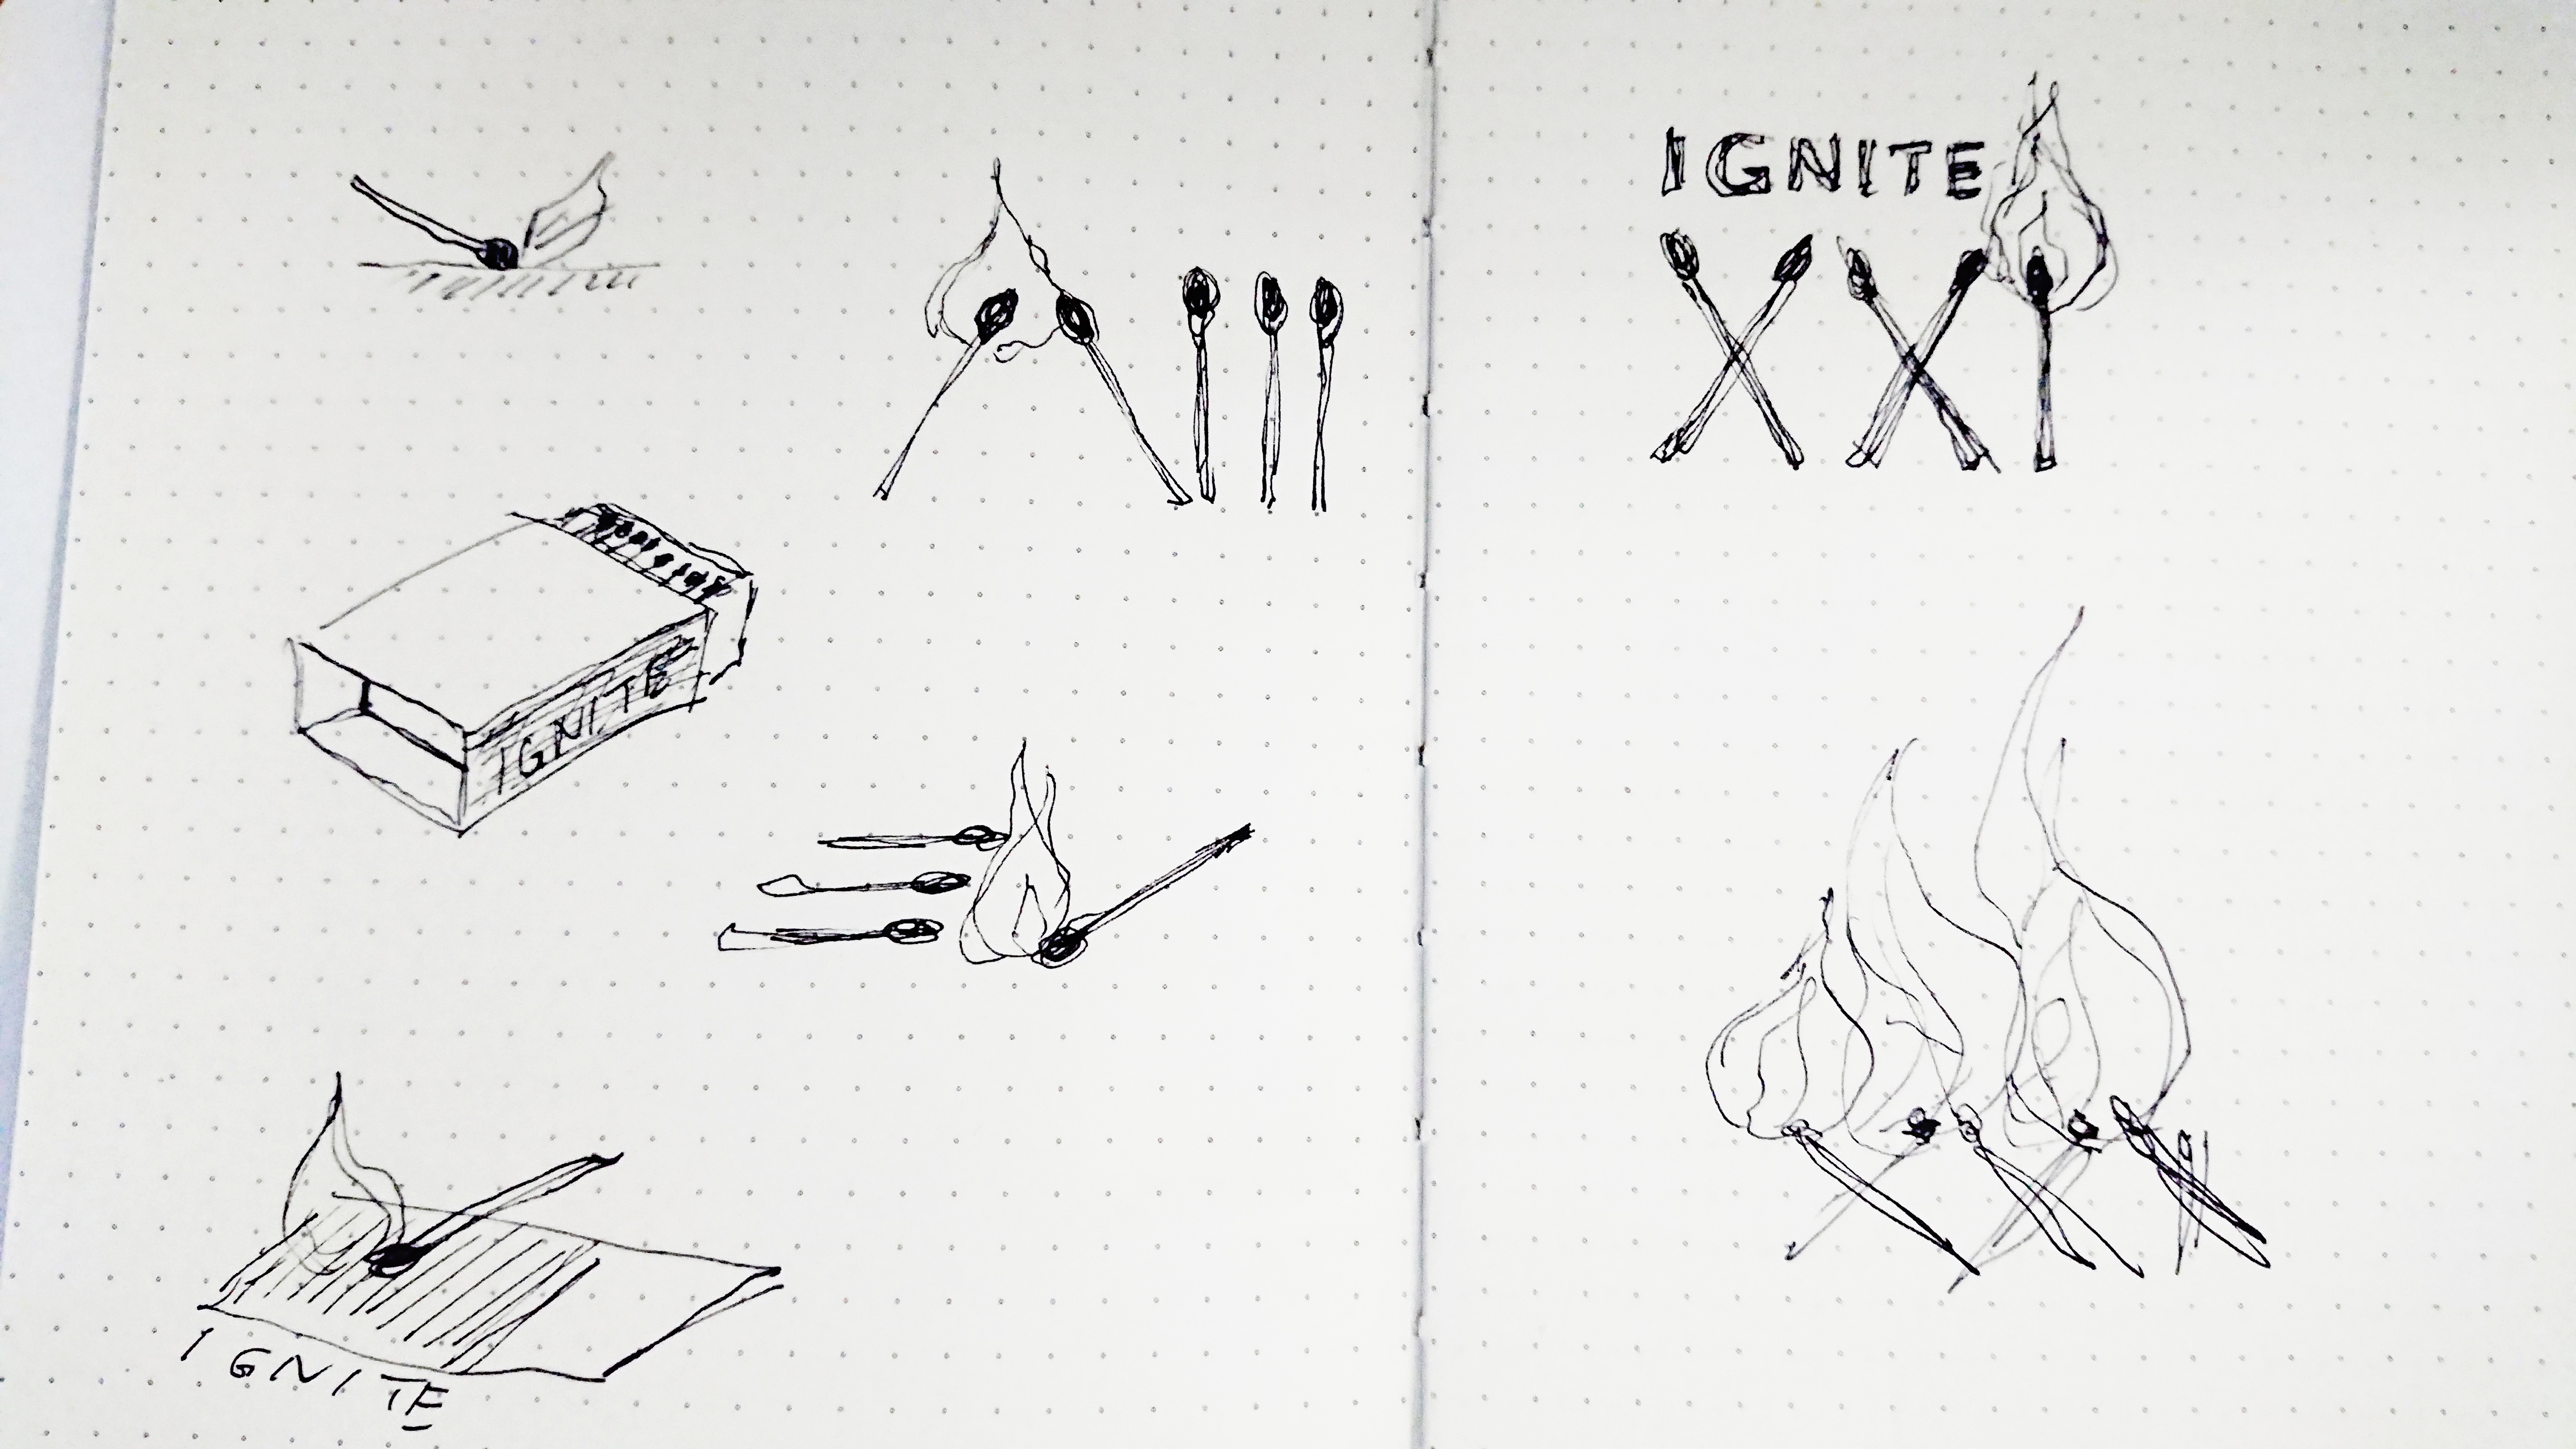 IGNITE
XXI
IGNITE
IGNITE